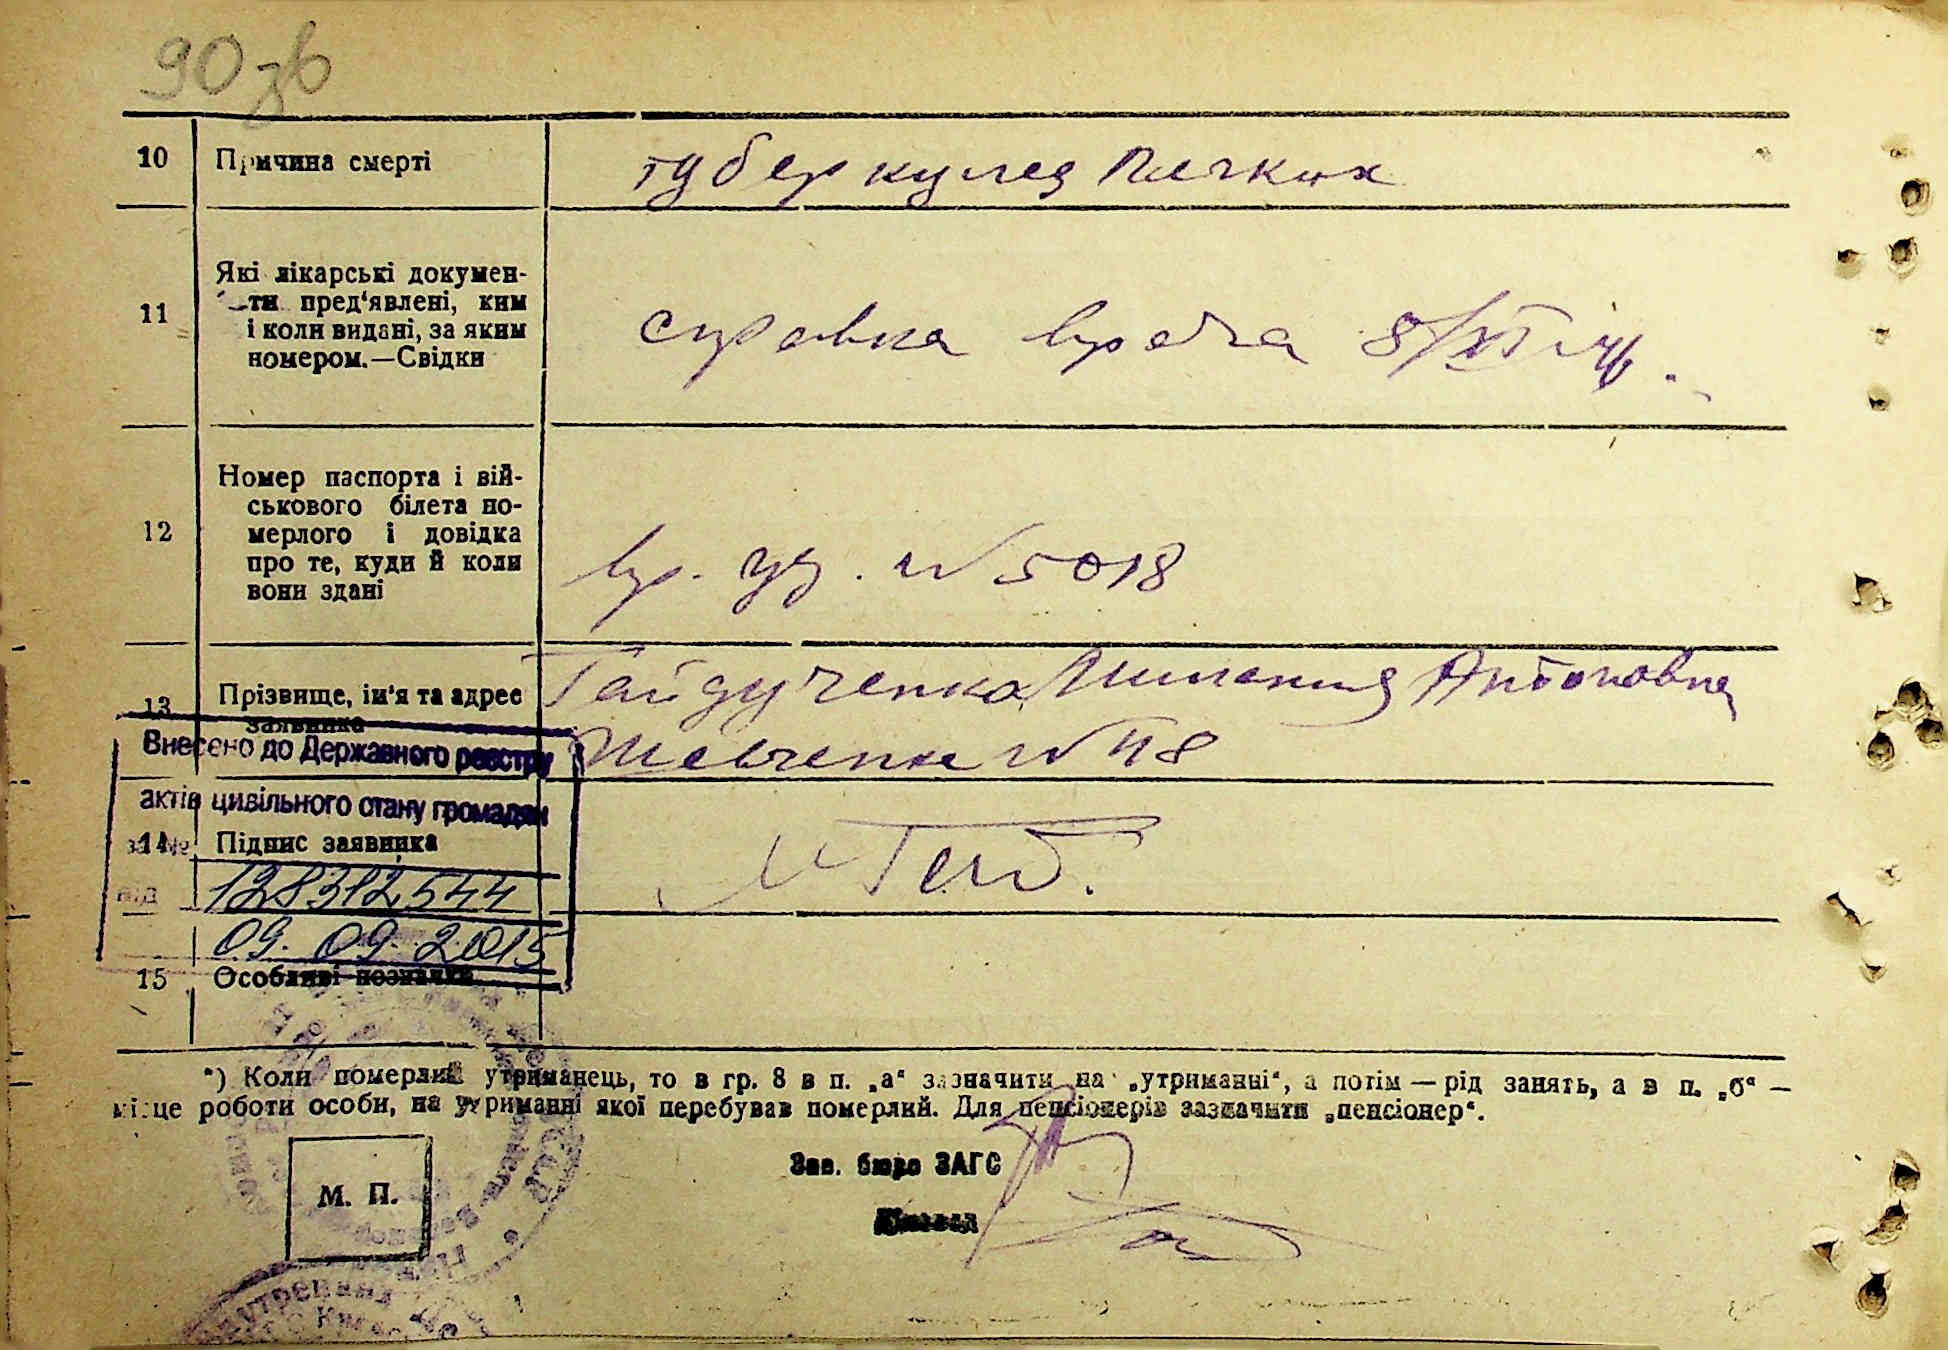 90 зв
10 Причина смерті туберкулез легких
11 Які лікарські документи пред'явлені, ким
і коли видані, за яким
номером.—Свідки
справка врача 8/XI-46.
12 Номер паспорта і вій-
ськового білета по-
мерлого і довідка
про те, куди й коли
вони здані
вр. уд. № 5018
13 Прізвище, ім'я та адрес
заявника
Гайдученко Антоновна
Шевченко № 48
Внесено до Державного реєстру
актів цивільного стану громадян
за №
14 Підпис заявника
від 128312544
09.09.2015
15 Особливі позначки
*) Коли померлий утриманець, то в гр. 8 в п. „а“ зазначити на „утриманні“, а потім — рід занять, а в п. „б“ —
місце роботи особи, на утриманні якої перебував померлий. Для пенсіонерів зазначити „пенсіонер“.
М. П.
Зав. бюро ЗАГС